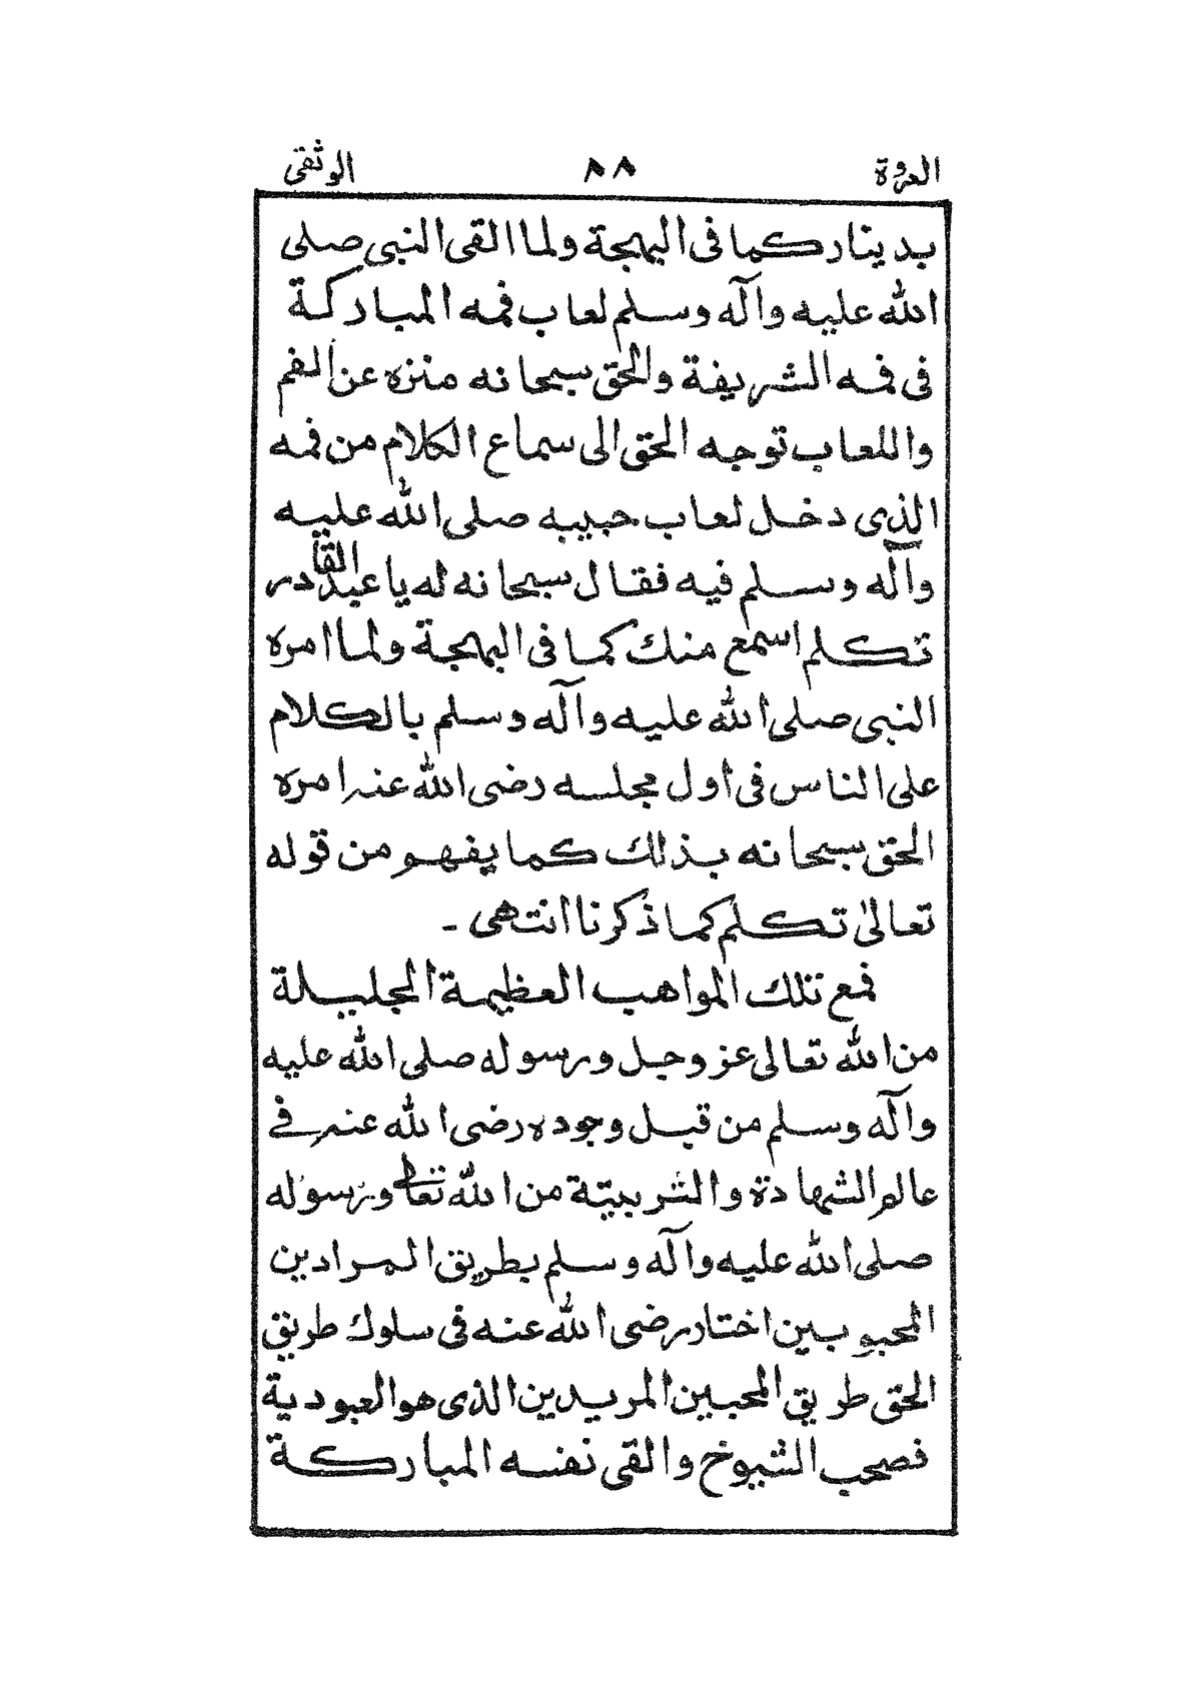 العروة ٨٨ الوثقى
بدينار كما فى البهجة ولما القى النبى صلى
الله عليه وآله وسلم لعاب فمه المباركة
فى فمه الشريفة والحق سبحانه منزه عن الفم
واللعاب توجه الحق الى سماع الكلام من فمه
الذى دخل لعاب حبيبه صلى الله عليه
وآله وسلم فيه فقال سبحانه له يا عبد القادر
تكلم اسمع منك كما فى البهجة ولما امره
النبى صلى الله عليه وآله وسلم بالكلام
على الناس فى اول مجلسه رضى الله عنه امره
الحق سبحانه بذلك كما يفهم من قوله
تعالىٰ تكلم كما ذكرنا انتهى ۔
فمع تلك المواهب العظيمة الجليلة
من الله تعالى عز وجل ورسوله صلى الله عليه
وآله وسلم من قبل وجوده رضى الله عنه فے
عالم الشهادة والتربيتة من الله تعالى ورسوله
صلى الله عليه وآله وسلم بطريق المرادين
المحبوبين اختار رضى الله عنه فى سلوك طريق
الحق طريق المحبين المريدين الذى هو العبودية
فصحب الشيوخ والقى نفسه المباركة